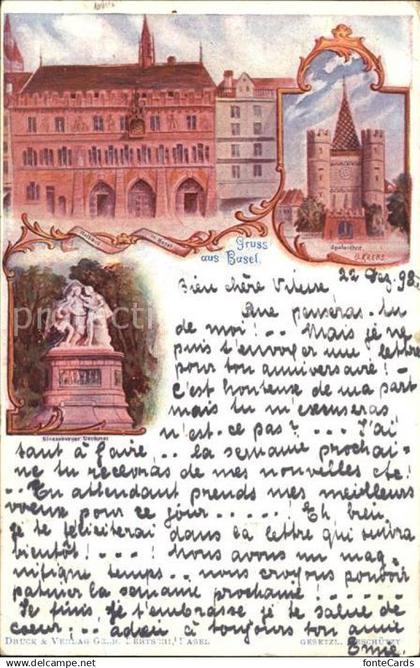 Rathaus Basel
Spalenthor
G. KREBS
Gruss
aus Basel.
Strassburger Denkmal
22 Dez. 98
Bien chère
Que penseras-tu
de moi! .. – Mais je ne
puis t'envoyer une lettre
pour ton anniversaire! –
C'est honteuse de ma part
mais tu m'excuseras
n'est-ce pas? – ... J'ai
tant à faire, .. la semaine prochai-
ne tu recevras de mes nouvelles etc!
.. En attendant prends mes meilleurs
voeux pour ce jour ..... ! Eh bien
je te féliciterai dans la lettre qui suivra
bientôt! ... ! nous avons un mag
nifique temps .. nous croyons pouvoir
patiner la semaine prochaine! .....
Je finis, je t'embrasse je te salue de
coeur ... adieu à toujours ton amie
DRUCK & VERLAG GEBR. BASEL.
GESETZL. GESCHÜTZT
www.delcampe.net
fonteCards